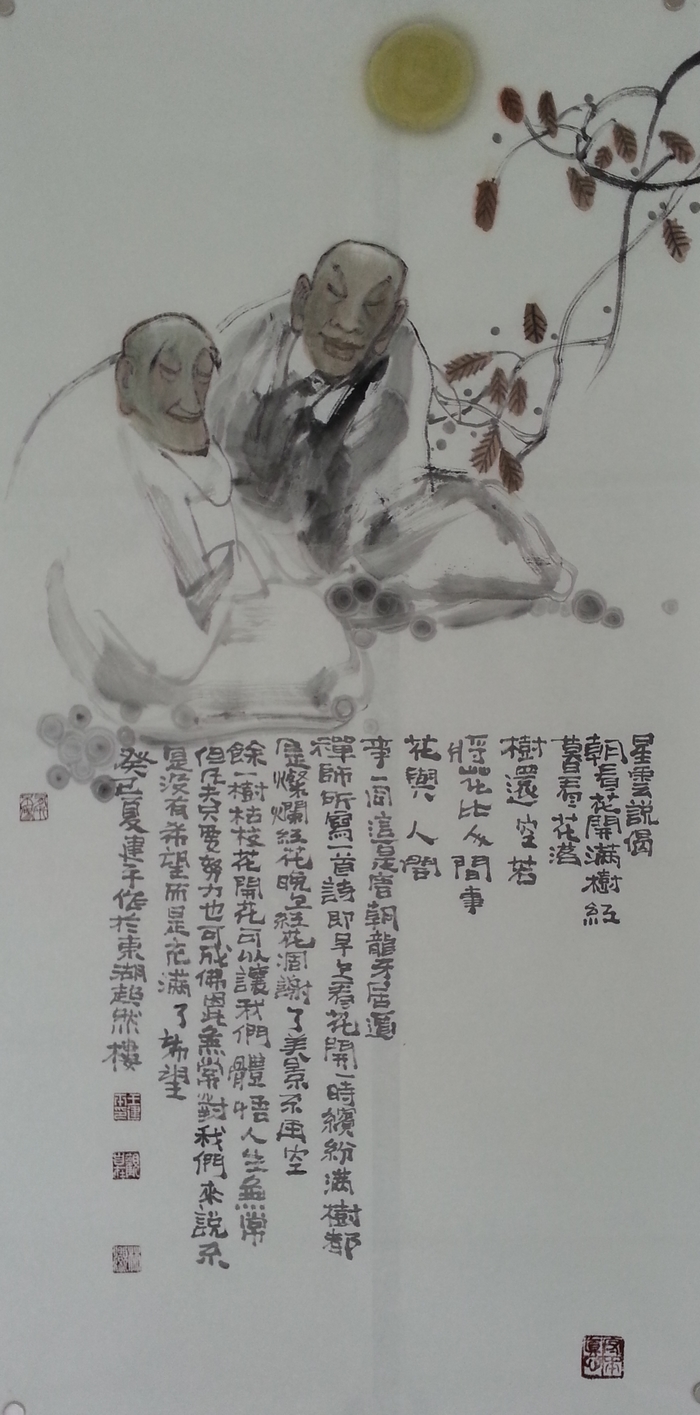 星雲說偈
朝看花開滿樹紅
暮看花落
樹還空若
將花比人間事
花與人間
事一同這是唐朝龍牙居遁
禪師所寫一首詩即早上看花開一時繽紛滿樹都
是燦爛紅花晚上紅花凋謝了美景不再空
餘一樹枯枝花開花可以讓我們體悟人生無常
但凡夫只要努力也可成佛因此無常對我們來說不
是沒有希望而是充滿了希望
癸巳夏建平作於東湖超然樓